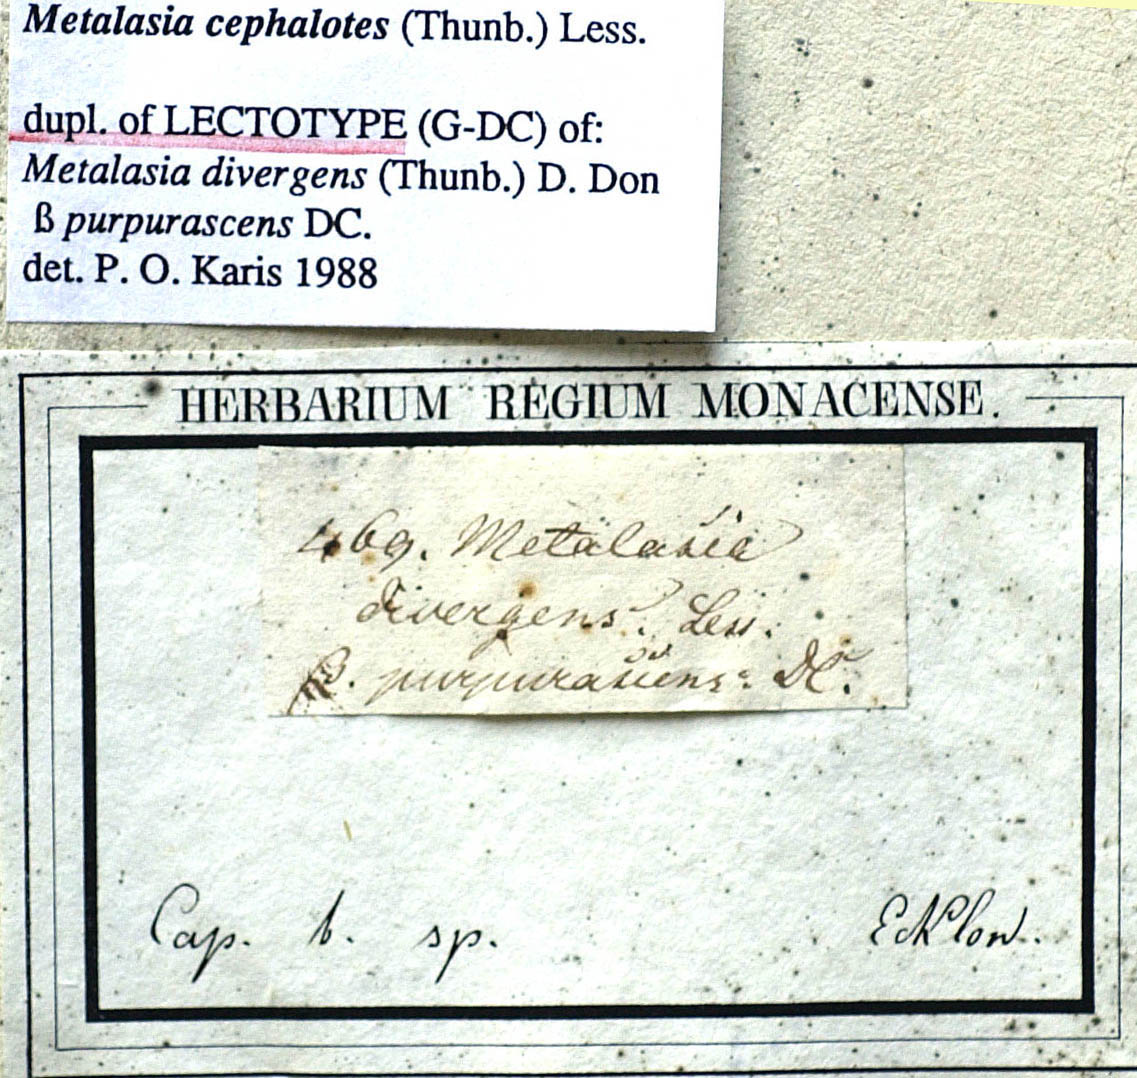 Metalasia cephalotes (Thunb.) Less.
dupl. of LECTOTYPE (G-DC) of:
Metalasia divergens (Thunb.) D. Don
ß purpurascens DC.
det. P. O. Karis 1988
HERBARIUM REGIUM MONACENSE.
469. Metalasia
divergens. Less.
β. purpurascens. DC.
Cap. b. sp.
Ecklon.